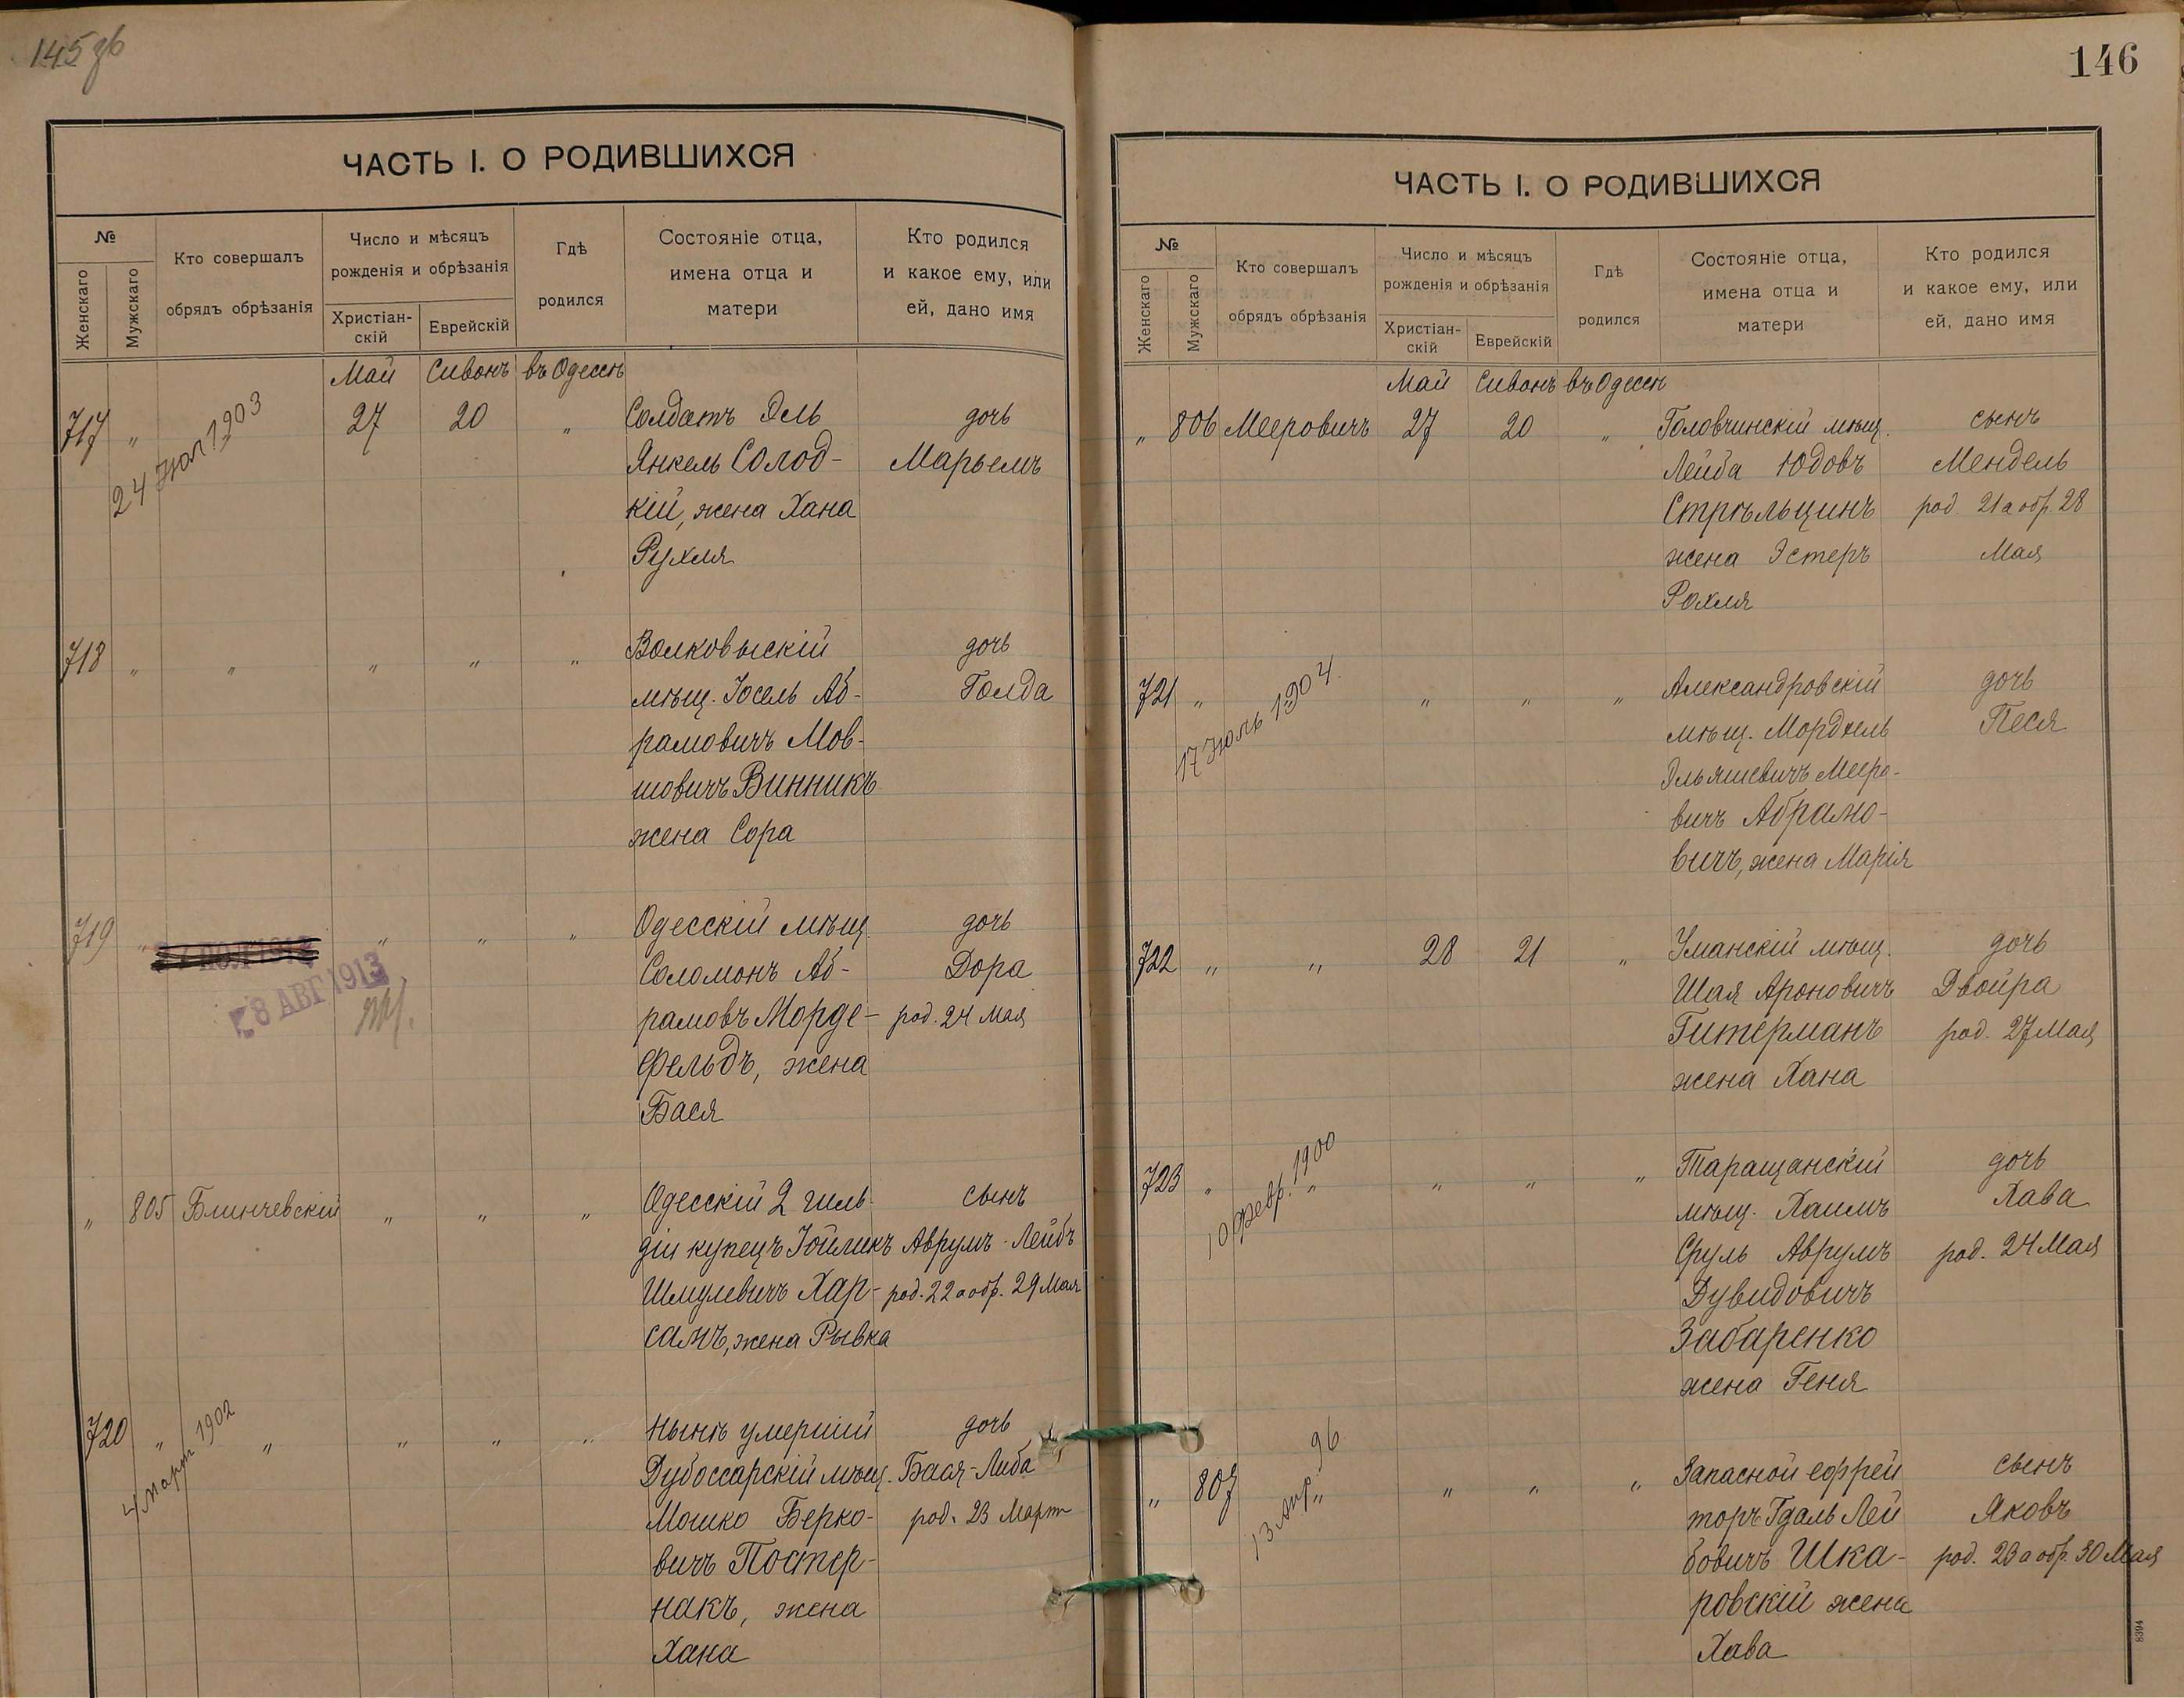 145 об
ЧАСТЬ I. О РОДИВШИХСЯ
№
Женскаго
Мужскаго
Кто совершалъ
обрядъ обрѣзанія
Число и мѣсяцъ
рожденія и обрѣзанія
Христіан-
скій
Еврейскій
Гдѣ
родился
Состояніе отца,
имена отца и
матери
Кто родился
и какое ему, или
ей, дано имя
Май Сивонъ въ Одессѣ
717 " 24 Ноя 1903 27 20 "
Солдатъ Эль
Янкель Солод-
кій, жена Хана
Рухля
дочь
Марьемъ
718 " " " " "
Волковыскій
мѣщ. Іосель Аб-
рамовичъ Мов-
шовичъ Винникъ
жена Сора
дочь
Голда
719 " " " "
8 АВГ 1913
Одесскій мѣщ.
Соломонъ Аб-
рамовъ Морде-
фельдъ, жена
Бася
дочь
Дора
род. 24 Мая
" 805 Блинчевскій " " "
Одесскій 2 гиль-
діи купецъ Іойликъ
Шмулевичъ Хар-
самъ, жена Рывка
сынъ
Аврумъ-Лейбъ
род. 22 а обр. 29 Мая
720 " " " " "
4 март 1902
Нынѣ умершій
Дубоссарскій мѣщ.
Мошко Берко-
вичъ Постер-
накъ, жена
Хана
дочь
Бася-Либа
род. 23 Март
146
ЧАСТЬ I. О РОДИВШИХСЯ
№
Женскаго
Мужскаго
Кто совершалъ
обрядъ обрѣзанія
Число и мѣсяцъ
рожденія и обрѣзанія
Христіан-
скій
Еврейскій
Гдѣ
родился
Состояніе отца,
имена отца и
матери
Кто родился
и какое ему, или
ей, дано имя
Май Сивонъ въ Одессѣ
" 806 Мееровичъ 27 20 "
Головчинскій мѣщ.
Лейба Юдовъ
Стрѣльцинъ
жена Эстеръ
Рохля
сынъ
Мендель
род 21 а обр. 28
Мая
721 " " " "
17 Июль 1904
Александровскій
мѣщ. Мордхель
Эльяшевичъ Мееро-
вичъ Абрамо-
вичъ, жена Марія
дочь
Песя
722 " " 28 21 "
Уманскій мѣщ.
Шая Ароновичъ
Гитерманъ
жена Хана
дочь
Двойра
род. 27 Мая
723 " " " " "
10 февр. 1900
Таращанскій
мѣщ. Хаимъ
Сруль Аврумъ
Дувидовичъ
Забаренко
жена Геня
дочь
Хава
род. 24 Мая
" 807 " " " "
13 Апр. 96
Запасной ефрей
торъ Гдаль Лей
бовичъ Шка-
ровскій жена
Хава
сынъ
Яковъ
род. 23 а обр. 30 Мая
8394